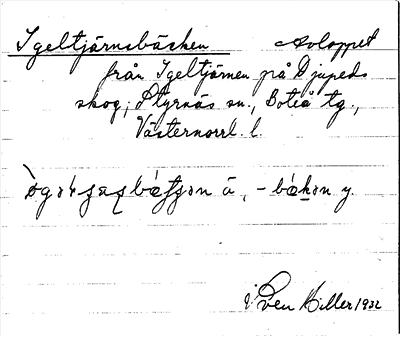 Igeltjärnsbäcken Avloppet
från Igeltjärnen på Djupeds
skog, Styrnäs sn., Boteå tg.,
Västernorrl. l.
ä, y.
Sven Hiller 1932